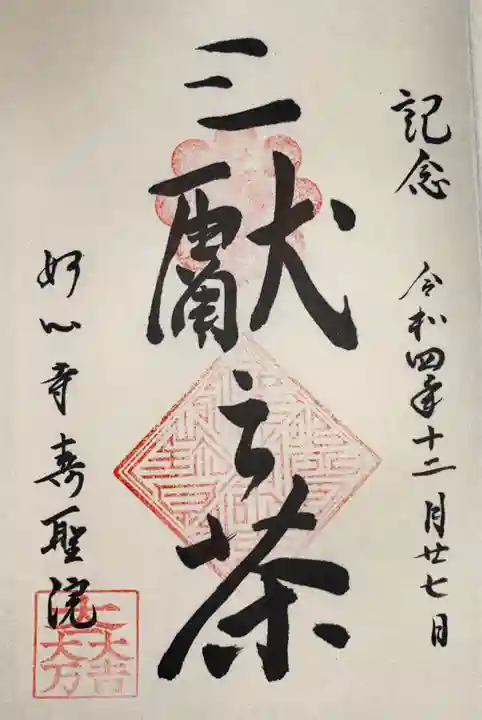 記念 令和四年十二月廿七日
三献之茶
妙心寺寿聖院
大一大万大吉